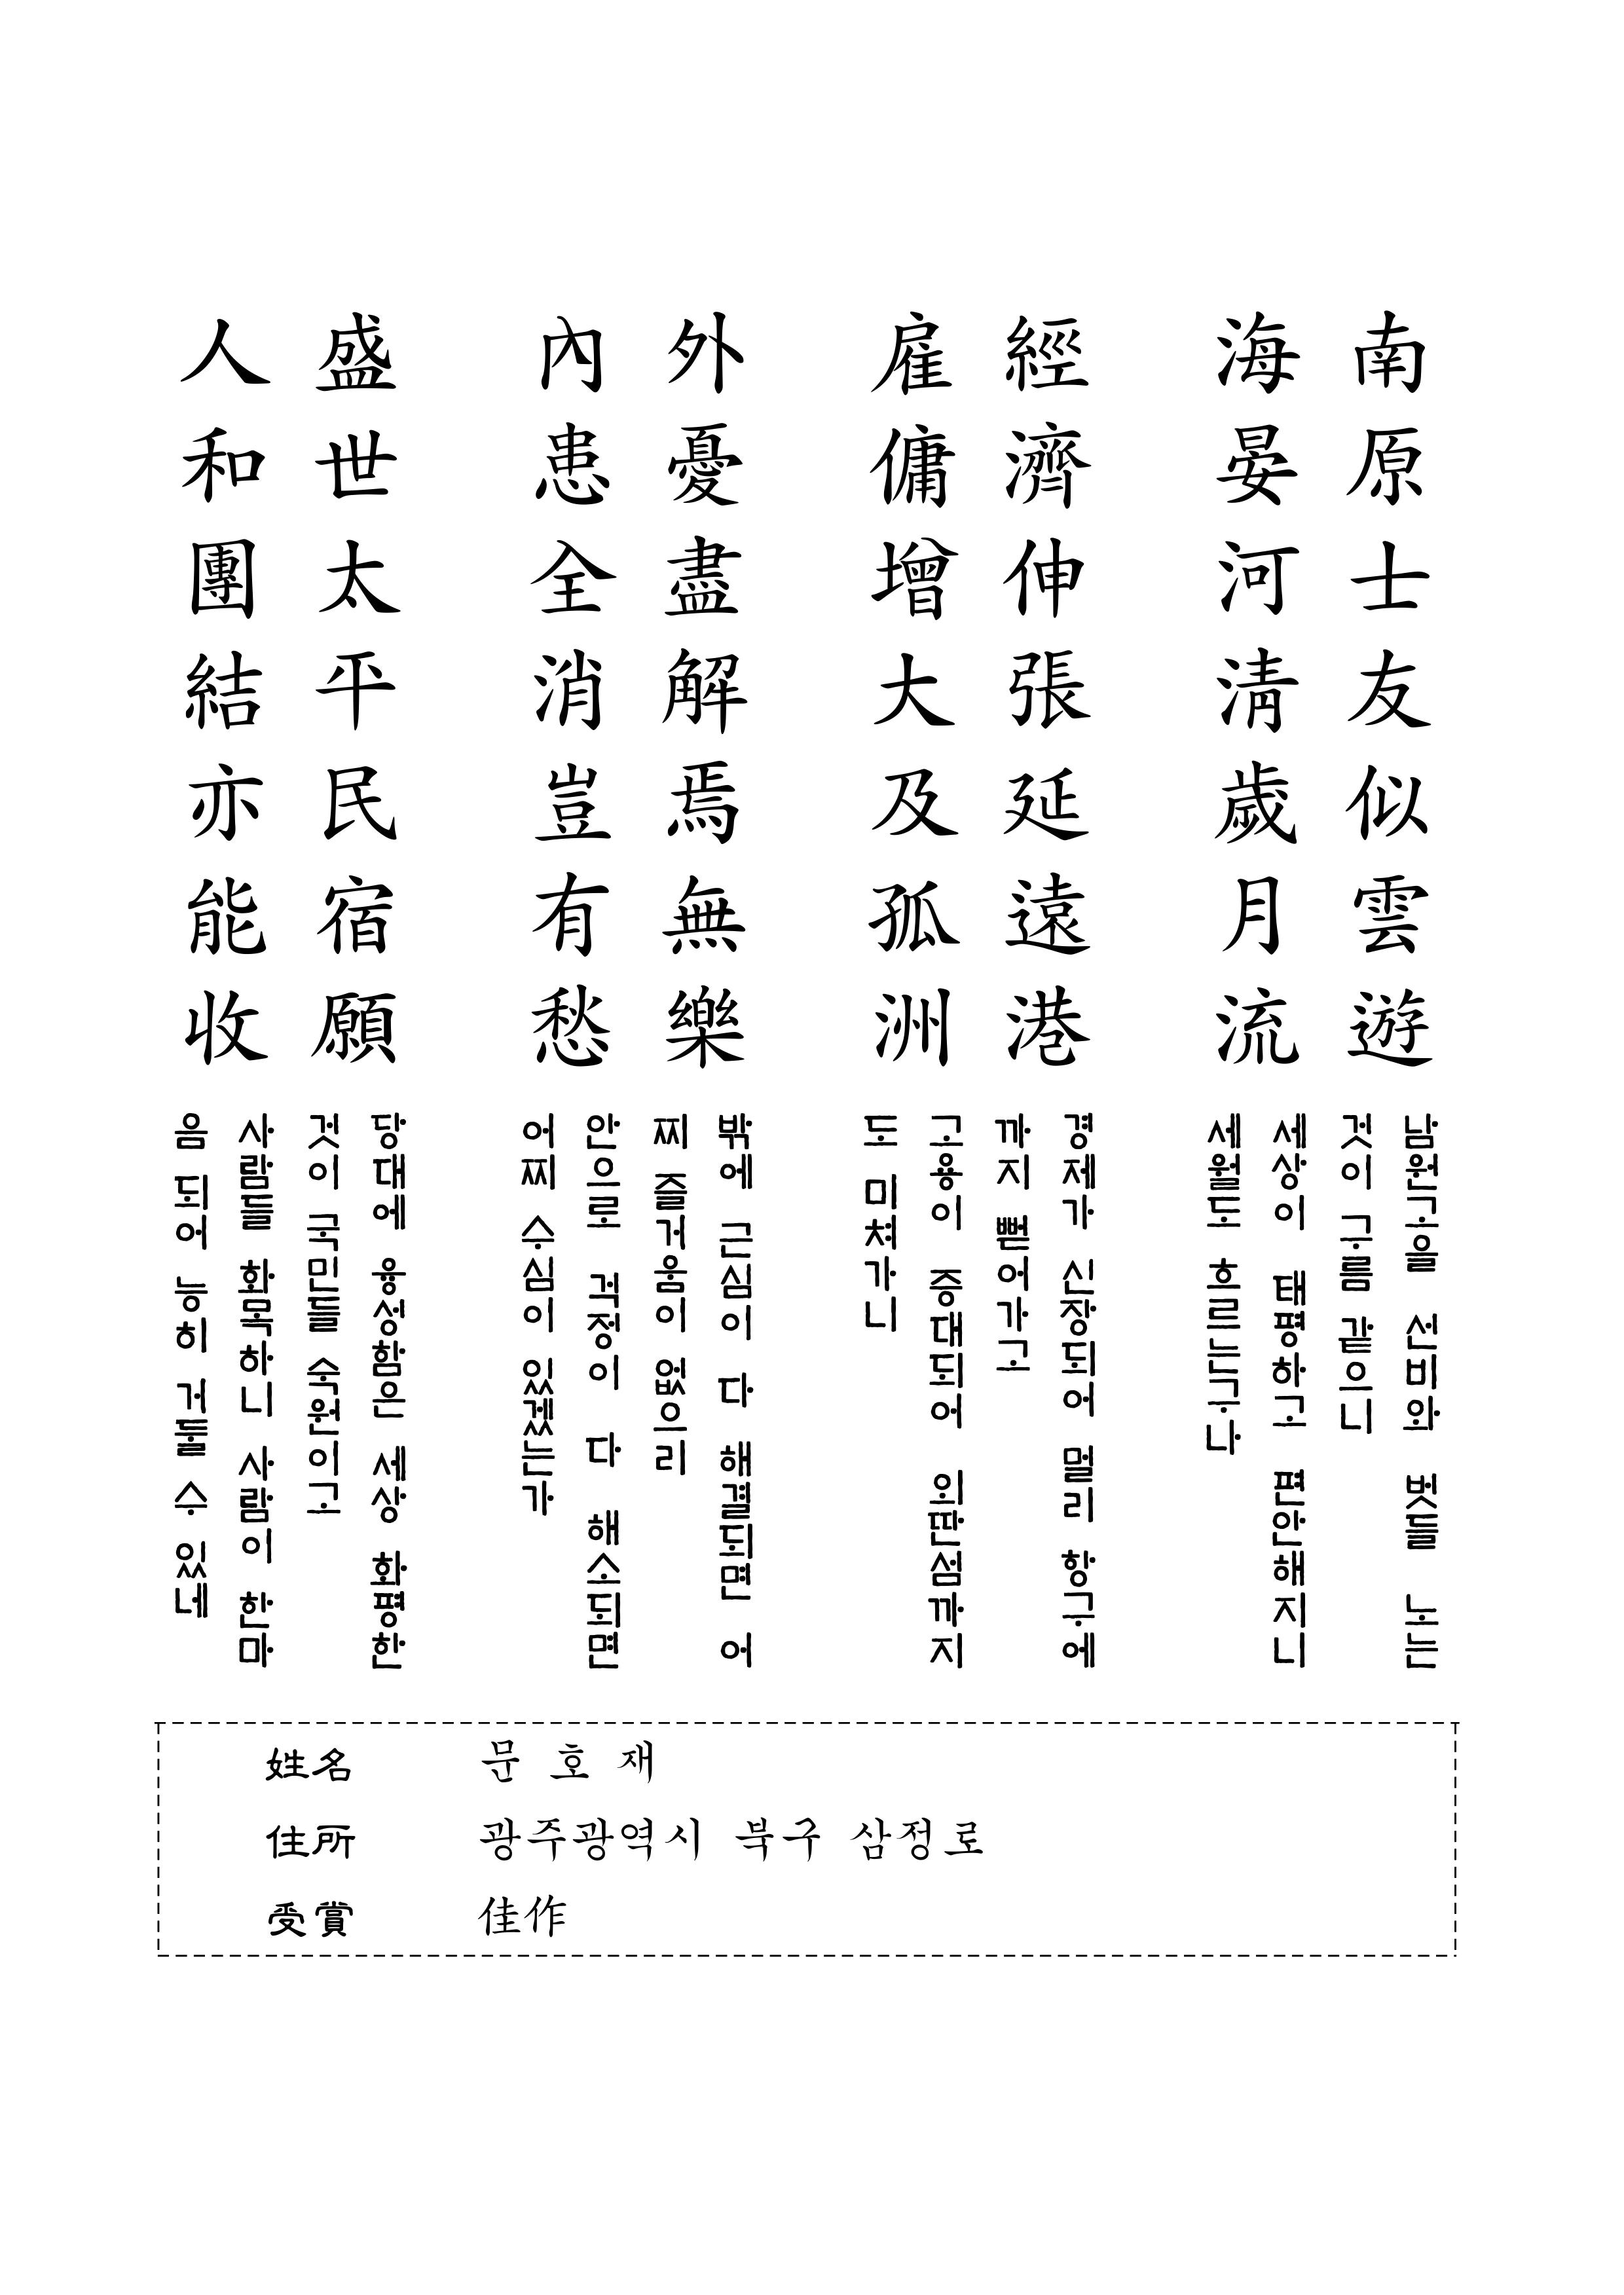 南原士友似雲遊
海晏河淸歲月流
經濟伸張延遠港
雇傭增大及孤洲
外憂盡解焉無樂
內患全消豈有愁
盛世太平民宿願
人和團結亦能收
남원고을 선비와 벗들 노는
것이 구름 같으니
세상이 태평하고 편안해지니
세월도 흐르는구나
경제가 신장되어 멀리 항구에
까지 뻗어가고
고용이 증대되어 외딴섬까지
도 미쳐가니
밖에 근심이 다 해결되면 어
찌 즐거움이 없으리
안으로 걱정이 다 해소되면
어찌 수심이 있겠는가
당대에 융성함은 세상 화평한
것이 국민들 숙원이고
사람들 화목하니 사람이 한마
음 되어 능히 거둘 수 있네
姓名 문 호 재
住所 광주광역시 북구 삼정로
受賞 佳作